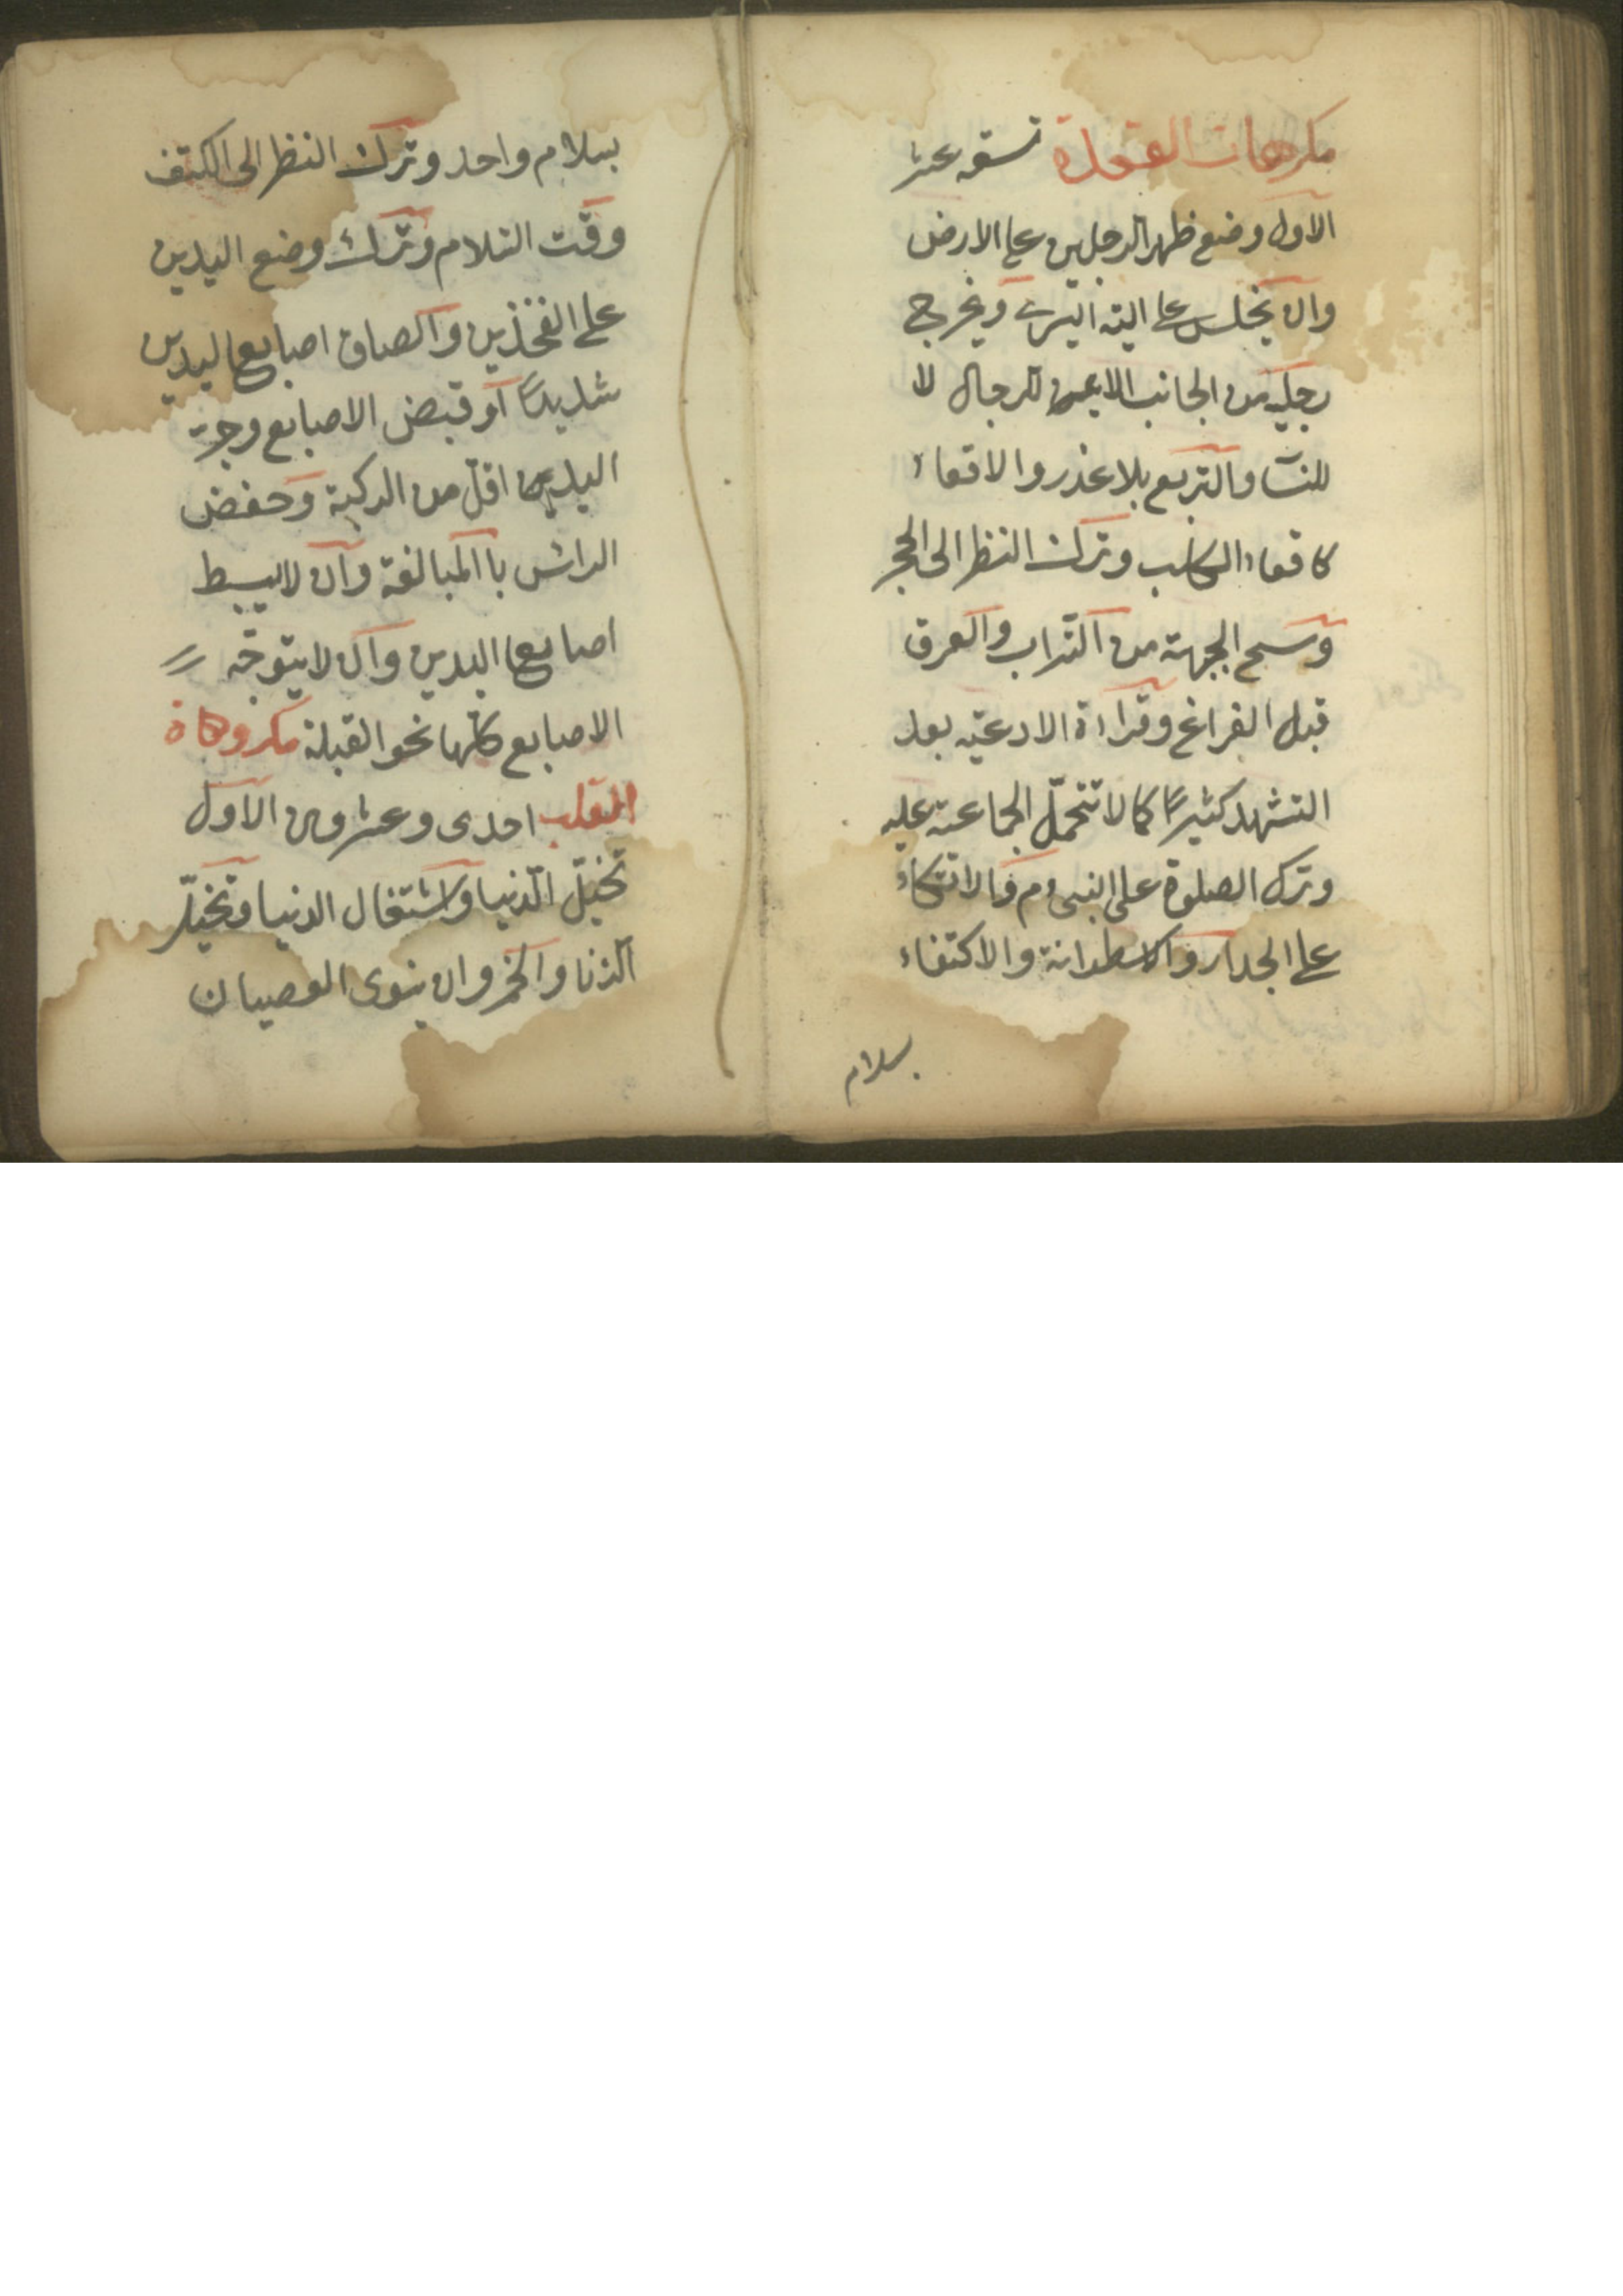 مكرهات القعدة تسعة عشر
الاول وضع ظهر الرجلين على الارض
وان يجلس على اليته اليسرى ويخرج
رجليه من الجانب الايمن للرجال لا
للنسآ والتربع بلا عذر والاقعاء
كاقعاء الكلب وترك النظر الى الحجر
ومسح الجبهة من التراب والعرق
قبل الفراغ وقراءة الادعية بعد
التشهد كثيرًا كما لا تتحمّل الجماعة عليه
وترك الصلوة على النبى م والاتكاء
على الجدار والاسطوانة والاكتفاء
بسلام
بسلام واحد وترك النظر الى الكتف
وقت السلام وترك وضع اليدين
على الفخذين والصاق اصابع اليدين
شديدًا او قبض الاصابع وجر
اليدين اقلّ من الركبة وخفض
الراس باالمبالغة وان لا يبسط
اصابع اليدين وان لا يتوجّه
الاصابع كلها نحو القبلة مكروهاة
القلب احدى وعشرون الاول
تخيّل الدنيا واشتغال الدنيا وتخيّل
الزنا والخمر وان ينوى العصيان